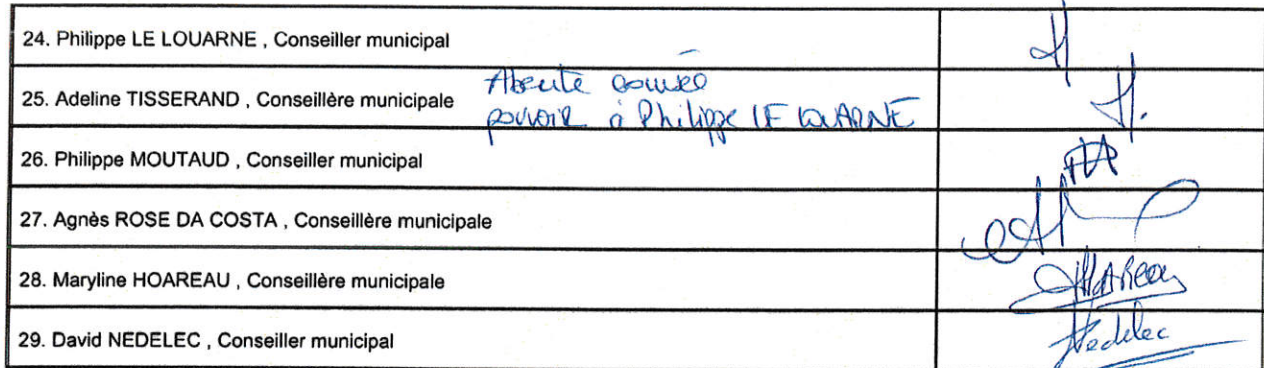 24. Philippe LE LOUARNE , Conseiller municipal
Absente
25. Adeline TISSERAND , Conseillère municipale
pouvoir à Philippe LE LOUARNE
26. Philippe MOUTAUD , Conseiller municipal
27. Agnès ROSE DA COSTA , Conseillère municipale
28. Maryline HOAREAU , Conseillère municipale
29. David NEDELEC , Conseiller municipal
Nedelec